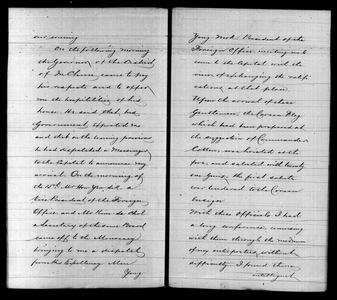 our evening
On the following morning
the Governor of the District
of In Chuen came to pay
his respects and to offer
me the hospitalities of his
house. He said that his
Government expected me
and that on the evening previous
he had despatched a Messenger
to the Capital to announce my
arrival. On the morning of
the 15th Mr
Vice President of the Foreign
Office and Mr
a Secretary of the same Board
came off to the Monocacy
bringing me a despatch
from His Excellency Min
Yong
Yong Mok President of the
Foreign Office inviting me to
come to the Capital with the
view of exchanging the ratifi
cations at that place.
Upon the arrival of these
Gentlemen, the Corean Flag
which had been prepared at
the suggestion of Commander
Cotton, was hoisted at the
fore, and saluted with twenty
one guns, the first salute
ever rendered to the Corean
ensign
With these officials I had
a long conference conversing
with them through the medium
of my interpreter without
difficulty. I found them
intelligent